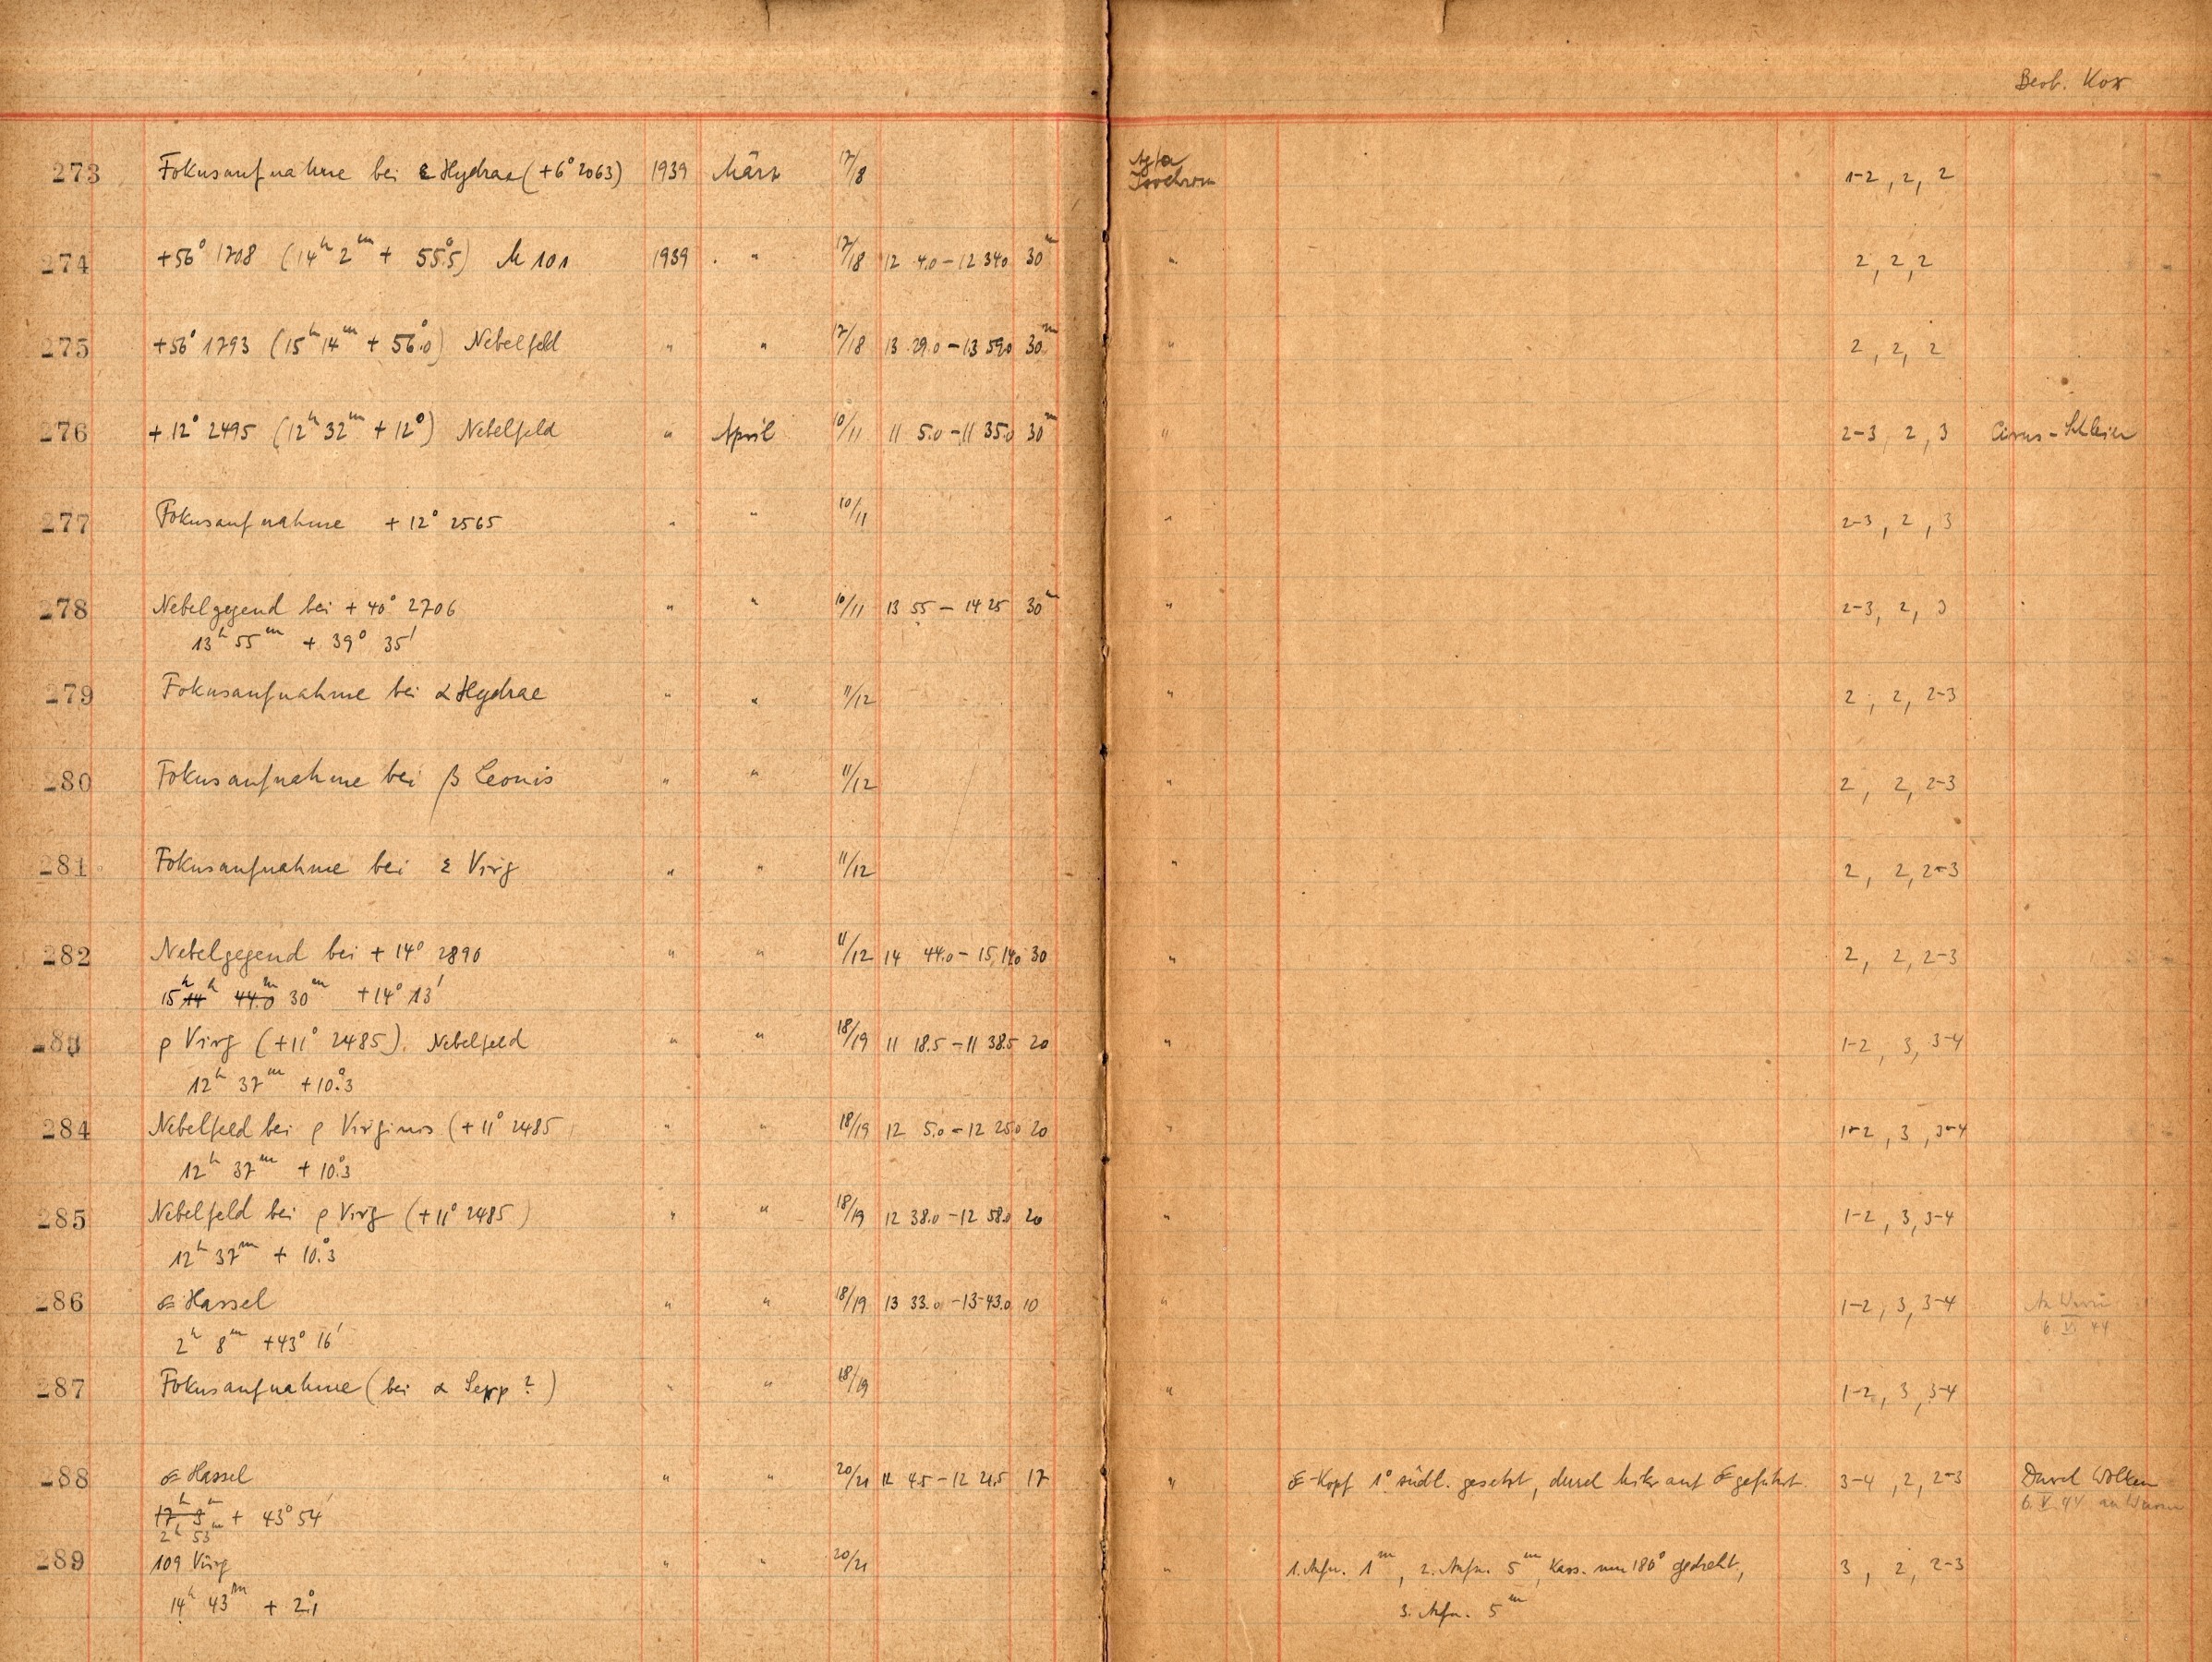 Beob. Kox
273 Fokusaufnahme bei ε Hydrae (+6° 2063) 1939 März 17/8 Agfa Isochrom 1-2, 2, 2
274 +56° 1708 (14h 2m + 55°.5) M 101 1939 " 17/18 12 4.0 - 12 34.0 30m " 2, 2, 2
275 +56° 1793 (15h 14m + 56°.0) Nebelfeld " " 17/18 13 29.0 - 13 59.0 30m " 2, 2, 2
276 +12° 2495 (12h 32m + 12°) Nebelfeld " April 10/11 11 5.0 - 11 35.0 30m " 2-3, 2, 3 Cirrus-Schleier
277 Fokusaufnahme +12° 2565 " " 10/11 " 2-3, 2, 3
278 Nebelgegend bei +40° 2706 " " 10/11 13 55 - 14 25 30m " 2-3, 2, 3
13h 55m + 39° 35'
279 Fokusaufnahme bei α Hydrae " " 11/12 " 2, 2, 2-3
280 Fokusaufnahme bei β Leonis " " 11/12 " 2, 2, 2-3
281 Fokusaufnahme bei ε Virg " " 11/12 " 2, 2, 2-3
282 Nebelgegend bei +14° 2890 " " 11/12 14 44.0 - 15 14.0 30 " 2, 2, 2-3
15h 14h 44.0m 30m +14° 13'
283 ρ Virg (+11° 2485). Nebelfeld " " 18/19 11 18.5 - 11 38.5 20 " 1-2, 3, 3-4
12h 37m +10°.3
284 Nebelfeld bei ρ Virginis (+11° 2485 " " 18/19 12 5.0 - 12 25.0 20 " 1-2, 3, 3-4
12h 37m +10°.3
285 Nebelfeld bei ρ Virg (+11° 2485) " " 18/19 12 38.0 - 12 58.0 20 " 1-2, 3, 3-4
12h 37m + 10°.3
286 ☄ Hassel " " 18/19 13 33.0 - 13 43.0 10 " 1-2, 3, 3-4 An Wurm
2h 8m +43° 16' 6 V 44
287 Fokusaufnahme (bei α Serp ?) " " 18/19 " 1-2, 3, 3-4
288 ☄ Hassel " " 20/21 12 4.5 - 12 21.5 17 " ☄-Kopf 1° südl. gesetzt, durch Mikr auf ☄ geführt 3-4, 2, 2-3 Durch Wolken
17h 3m + 43° 54' 6. V 44 an Wurm
2h 53m
289 109 Virg " " 20/21 " 1. Aufn. 1m, 2. Aufn. 5m, Kass. um 180° gedreht, 3, 2, 2-3
14h 43m + 2°.1 3. Aufn. 5m